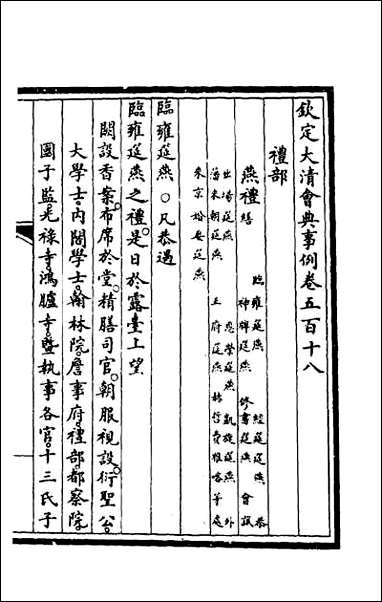 欽定大清會典事例卷五百十八
禮部
燕禮
臨雍筵燕 經筵筵燕 恭
繕 神牌筵燕 修書筵燕 會試
出場筵燕 恩榮筵燕 凱旋筵燕 外
藩來朝筵燕 王府筵燕 赫哲費雅喀等處
來京婚娶筵燕
臨雍筵燕○凡恭遇
臨雍筵燕之禮。是日於露臺上望
闕設香案。布席於堂。精膳司官。朝服視設。衍聖公。
大學士。內閣學士。翰林院。詹事府。禮部。都察院。
國子監。光祿寺。鴻臚寺。暨執事各官。十三氏子